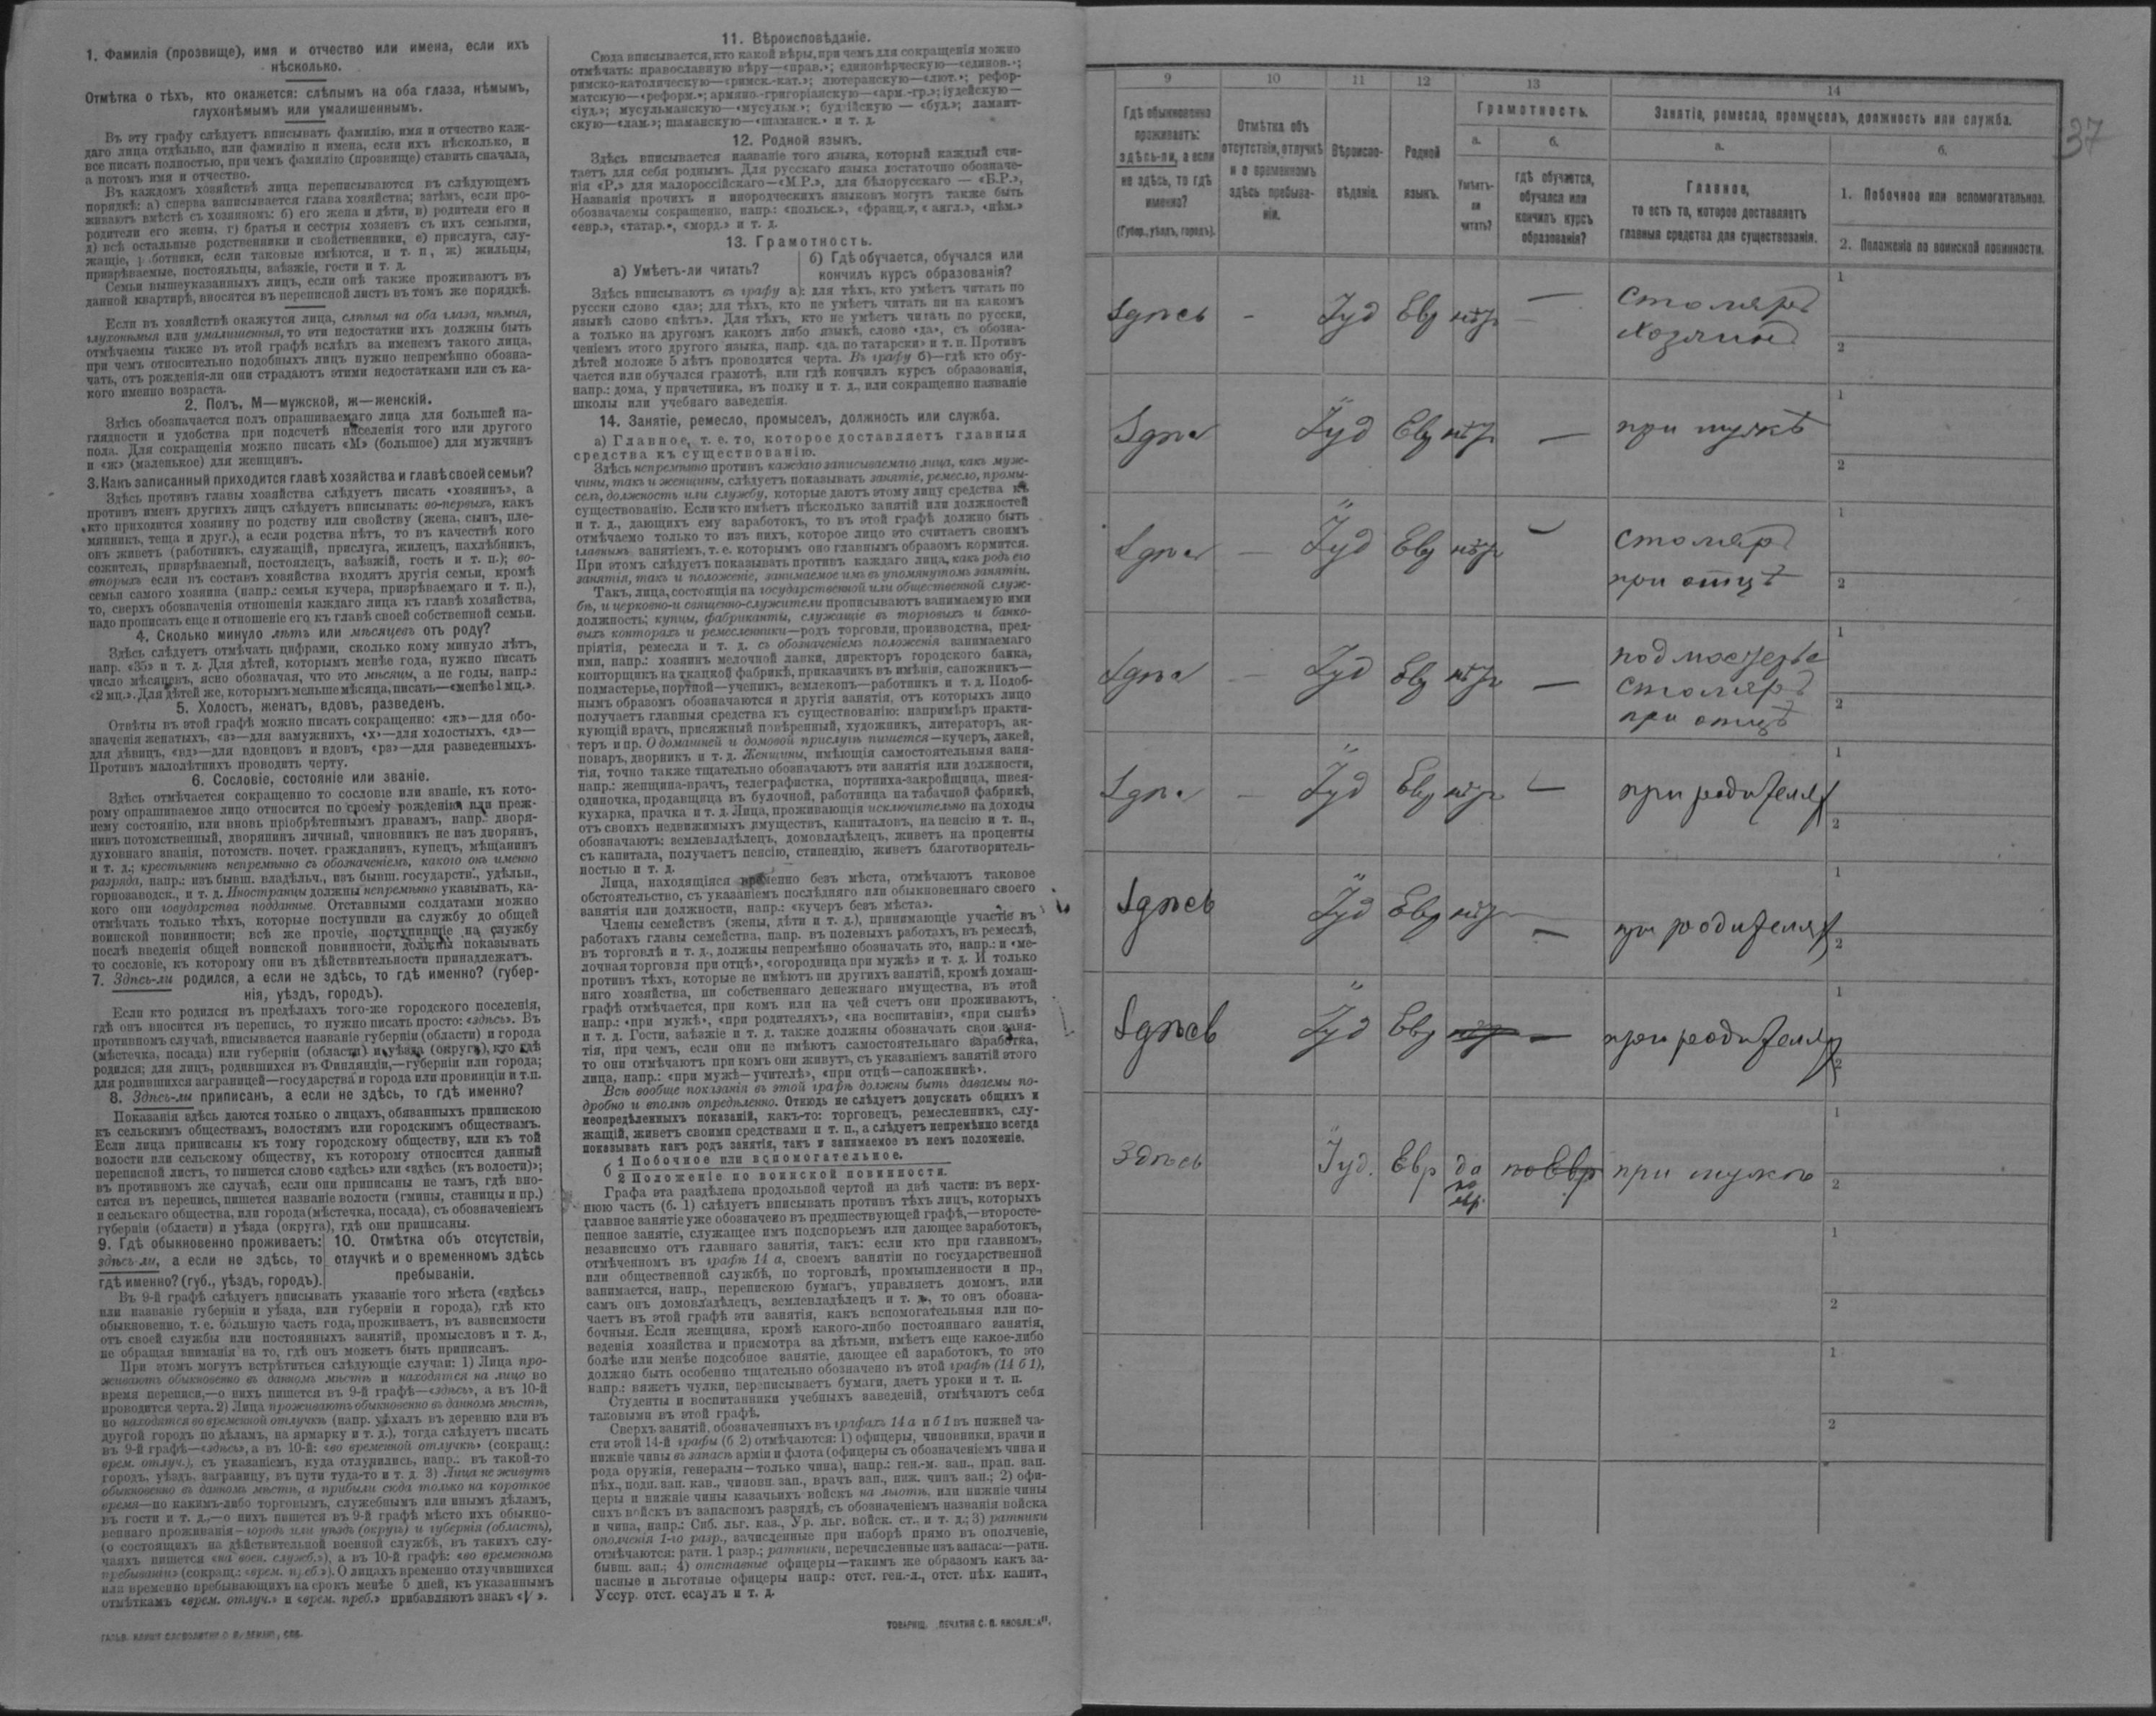 1. Фамилія (прозвище), имя и отчество или имена, если ихъ
нѣсколько.
Отмѣтка о тѣхъ, кто окажется: слѣпымъ на оба глаза, нѣмымъ,
глухонѣмымъ или умалишеннымъ.
Въ эту графу слѣдуетъ вписывать фамилію, имя и отчество каж-
даго лица отдѣльно, или фамилію и имена, если ихъ нѣсколько, и
все писать полностью, при чемъ фамилію (прозвище) ставить сначала,
а потомъ имя и отчество.
Въ каждомъ хозяйствѣ лица переписываются въ слѣдующемъ
порядкѣ: а) сперва записывается глава хозяйства; затѣмъ, если про-
живаютъ вмѣстѣ съ хозяиномъ: б) его жена и дѣти, в) родители его и
родители его жены, г) братья и сестры хозяевъ съ ихъ семьями,
д) всѣ остальные родственники и свойственники, е) прислуга, слу-
жащіе, работники, если таковые имѣются, и т. п., ж) жильцы,
призрѣваемые, постояльцы, заѣзжіе, гости и т. д.
Семьи вышеуказанныхъ лицъ, если онѣ также проживаютъ въ
данной квартирѣ, вносятся въ переписной листъ въ томъ же порядкѣ.
Если въ хозяйствѣ окажутся лица, слѣпыя на оба глаза, нѣмыя,
глухонѣмыя или умалишенныя, то эти недостатки ихъ должны быть
отмѣчаемы также въ этой графѣ вслѣдъ за именемъ такого лица,
при чемъ относительно подобныхъ лицъ нужно непремѣнно обозна-
чать, отъ рожденія-ли они страдаютъ этими недостатками или съ ка-
кого именно возраста.
2. Полъ. М—мужской, ж—женскій.
Здѣсь обозначается полъ опрашиваемаго лица для большей на-
глядности и удобства при подсчетѣ населенія того или другого
пола. Для сокращенія можно писать «М» (большое) для мужчинъ
и «ж» (маленькое) для женщинъ.
3. Какъ записанный приходится главѣ хозяйства и главѣ своей семьи?
Здѣсь противъ главы хозяйства слѣдуетъ писать «хозяинъ», а
противъ именъ другихъ лицъ слѣдуетъ вписывать: во-первыхъ, какъ
кто приходится хозяину по родству или свойству (жена, сынъ, пле-
мянникъ, теща и друг.), а если родства нѣтъ, то въ качествѣ кого
онъ живетъ (работникъ, служащій, прислуга, жилецъ, нахлѣбникъ,
сожитель, призрѣваемый, постоялецъ, заѣзжій, гость и т. п.); во-
вторыхъ если въ составъ хозяйства входятъ другія семьи, кромѣ
семьи самого хозяина (напр.: семья кучера, призрѣваемаго и т. п.),
то, сверхъ обозначенія отношенія каждаго лица къ главѣ хозяйства,
надо прописать еще и отношеніе его къ главѣ своей собственной семьи.
4. Сколько минуло лѣтъ или мѣсяцевъ отъ роду?
Здѣсь слѣдуетъ отмѣчать цифрами, сколько кому минуло лѣтъ,
напр. «35» и т. д. Для дѣтей, которымъ менѣе года, нужно писать
число мѣсяцевъ, ясно обозначая, что это мѣсяцы, а не годы, напр.:
«2 мц.». Для дѣтей же, которымъ меньше мѣсяца, писать—«менѣе 1 мц.».
5. Холостъ, женатъ, вдовъ, разведенъ.
Отвѣты въ этой графѣ можно писать сокращенно: «ж»—для обо-
значенія женатыхъ, «з»—для замужнихъ, «х»—для холостыхъ, «д»—
для дѣвицъ, «вд»—для вдовцовъ и вдовъ, «рз»—для разведенныхъ.
Противъ малолѣтнихъ проводить черту.
6. Сословіе, состояніе или званіе.
Здѣсь отмѣчается сокращенно то сословіе или званіе, къ кото-
рому опрашиваемое лицо относится по своему рожденію или преж-
нему состоянію, или вновь пріобрѣтеннымъ правамъ, напр.: дворя-
нинъ потомственный, дворянинъ личный, чиновникъ не изъ дворянъ,
духовнаго званія, потомств. почет. гражданинъ, купецъ, мѣщанинъ
и т. д.; крестьянинъ непремѣнно съ обозначеніемъ, какого онъ именно
разряда, напр.: изъ бывш. владѣльч., изъ бывш. государств., удѣльн.,
горнозаводск., и т. д. Иностранцы должны непремѣнно указывать, ка-
кого они государства подданные. Отставными солдатами можно
отмѣчать только тѣхъ, которые поступили на службу до общей
воинской повинности; всѣ же прочіе, поступившіе на службу
послѣ введенія общей воинской повинности, должны показывать
то сословіе, къ которому они въ дѣйствительности принадлежатъ.
7. Здѣсь-ли родился, а если не здѣсь, то гдѣ именно? (губер-
нія, уѣздъ, городъ).
Если кто родился въ предѣлахъ того-же городского поселенія,
гдѣ онъ вносится въ перепись, то нужно писать просто: «здѣсь». Въ
противномъ случаѣ, вписывается названіе губерніи (области) и города
(мѣстечка, посада) или губерніи (области) и уѣзда (округа), кто гдѣ
родился; для лицъ, родившихся въ Финляндіи,—губерніи или города;
для родившихся заграницей—государства и города или провинціи и т.п.
8. Здѣсь-ли приписанъ, а если не здѣсь, то гдѣ именно?
Показанія здѣсь даются только о лицахъ, обязанныхъ припискою
къ сельскимъ обществамъ, волостямъ или городскимъ обществамъ.
Если лица приписаны къ тому городскому обществу, или къ той
волости или сельскому обществу, къ которому относится данный
переписной листъ, то пишется слово «здѣсь» или «здѣсь (къ волости)»;
въ противномъ же случаѣ, если они приписаны не тамъ, гдѣ вно-
сятся въ перепись, пишется названіе волости (гмины, станицы и пр.)
и сельскаго общества, или города (мѣстечка, посада), съ обозначеніемъ
губерніи (области) и уѣзда (округа), гдѣ они приписаны.
9. Гдѣ обыкновенно проживаетъ:
здѣсь-ли, а если не здѣсь, то
гдѣ именно? (губ., уѣздъ, городъ).
10. Отмѣтка объ отсутствіи,
отлучкѣ и о временномъ здѣсь
пребываніи.
Въ 9-й графѣ слѣдуетъ вписывать указаніе того мѣста («здѣсь»
или названіе губерніи и уѣзда, или губерніи и города), гдѣ кто
обыкновенно, т. е. большую часть года, проживаетъ, въ зависимости
отъ своей службы или постоянныхъ занятій, промысловъ и т. д.,
не обращая вниманія на то, гдѣ онъ можетъ быть приписанъ.
При этомъ могутъ встрѣтиться слѣдующіе случаи: 1) Лица про-
живаютъ обыкновенно въ данномъ мѣстѣ и находятся на лицо во
время переписи,—о нихъ пишется въ 9-й графѣ—«здѣсь», а въ 10-й
проводится черта. 2) Лица проживаютъ обыкновенно въ данномъ мѣстѣ,
но находятся во временной отлучкѣ (напр. уѣхалъ въ деревню или въ
другой городъ по дѣламъ, на ярмарку и т. д.), тогда слѣдуетъ писать
въ 9-й графѣ—«здѣсь», а въ 10-й: «во временной отлучкѣ» (сокращ.:
врем. отлуч.), съ указаніемъ, куда отлучились, напр.: въ такой-то
городъ, уѣздъ, заграницу, въ пути туда-то и т. д. 3) Лица не живутъ
обыкновенно въ данномъ мѣстѣ, а прибыли сюда только на короткое
время—по какимъ-либо торговымъ, служебнымъ или инымъ дѣламъ,
въ гости и т. д.,—о нихъ пишется въ 9-й графѣ мѣсто ихъ обыкно-
веннаго проживанія—городъ или уѣздъ (округъ) и губернія (область),
(о состоящихъ на дѣйствительной военной службѣ, въ такихъ слу-
чаяхъ пишется «на воен. служб.»), а въ 10-й графѣ: «во временномъ
пребываніи» (сокращ.: «врем. преб.»). О лицахъ временно отлучившихся
или временно пребывающихъ на срокъ менѣе 5 дней, къ указаннымъ
отмѣткамъ «врем. отлуч.» и «врем. преб.» прибавляютъ знакъ «V».
11. Вѣроисповѣданіе.
Сюда вписывается, кто какой вѣры, при чемъ для сокращенія можно
отмѣчать: православную вѣру—«прав.»; единовѣрческую—«единов.»;
римско-католическую—«римск.-кат.»; лютеранскую—«лют.»; рефор-
матскую—«реформ.»; армяно-григоріанскую—«арм.-гр.»; іудейскую—
«іуд.»; мусульманскую—«мусульм.»; буддійскую — «буд.»; ламаит-
скую—«лам.»; шаманскую—«шаманск.» и т. д.
12. Родной языкъ.
Здѣсь вписывается названіе того языка, который каждый счи-
таетъ для себя роднымъ. Для русскаго языка достаточно обозначе-
нія «Р.» для малороссійскаго—«М.Р.», для бѣлорусскаго — «Б.Р.»,
Названія прочихъ и инородческихъ языковъ могутъ также быть
обозначаемы сокращенно, напр.: «польск.», «франц.», «англ.», «нѣм.»
«евр.», «татар.», «морд.» и т. д.
13. Грамотность.
а) Умѣетъ-ли читать?
б) Гдѣ обучается, обучался или
кончилъ курсъ образованія?
Здѣсь вписываютъ въ графу а): для тѣхъ, кто умѣетъ читать по
русски слово «да»; для тѣхъ, кто не умѣетъ читать ни на какомъ
языкѣ слово «нѣтъ». Для тѣхъ, кто не умѣетъ читать по русски,
а только на другомъ какомъ либо языкѣ, слово «да», съ обозна-
ченіемъ этого другого языка, напр. «да, по татарски» и т. п. Противъ
дѣтей моложе 5 лѣтъ проводится черта. Въ графу б)—гдѣ кто обу-
чается или обучался грамотѣ, или гдѣ кончилъ курсъ образованія,
напр.: дома, у причетника, въ полку и т. д., или сокращенно названіе
школы или учебнаго заведенія.
14. Занятіе, ремесло, промыселъ, должность или служба.
а) Главное, т. е. то, которое доставляетъ главныя
средства къ существованію.
Здѣсь непремѣнно противъ каждаго записываемаго лица, какъ муж-
чины, такъ и женщины, слѣдуетъ показывать занятіе, ремесло, промы-
селъ, должность или службу, которые даютъ этому лицу средства къ
существованію. Если кто имѣетъ нѣсколько занятій или должностей
и т. д., дающихъ ему заработокъ, то въ этой графѣ должно быть
отмѣчаемо только то изъ нихъ, которое лицо это считаетъ своимъ
главнымъ занятіемъ, т. е. которымъ оно главнымъ образомъ кормится.
При этомъ слѣдуетъ показывать противъ каждаго лица, какъ родъ его
занятія, такъ и положеніе, занимаемое имъ въ упомянутомъ занятіи.
Такъ, лица, состоящія на государственной или общественной служ-
бѣ, и церковно-и священно-служители прописываютъ занимаемую ими
должность; купцы, фабриканты, служащіе въ торговыхъ и банко-
выхъ конторахъ и ремесленники—родъ торговли, производства, пред-
пріятія, ремесла и т. д. съ обозначеніемъ положенія занимаемаго
ими, напр.: хозяинъ мелочной лавки, директоръ городского банка,
конторщикъ на ткацкой фабрикѣ, приказчикъ въ имѣніи, сапожникъ—
подмастерье, портной—ученикъ, землекопъ—работникъ и т. д. Подоб-
нымъ образомъ обозначаются и другія занятія, отъ которыхъ лицо
получаетъ главныя средства къ существованію: напримѣръ практи-
кующій врачъ, присяжный повѣренный, художникъ, литераторъ, ак-
теръ и пр. О домашней и домовой прислугѣ пишется—кучеръ, лакей,
поваръ, дворникъ и т. д. Женщины, имѣющія самостоятельныя заня-
тія, точно также тщательно обозначаютъ эти занятія или должности,
напр.: женщина-врачъ, телеграфистка, портниха-закройщица, швея-
одиночка, продавщица въ булочной, работница на табачной фабрикѣ,
кухарка, прачка и т. д. Лица, проживающія исключительно на доходы
отъ своихъ недвижимыхъ имуществъ, капиталовъ, на пенсію и т. п.,
обозначаютъ: землевладѣлецъ, домовладѣлецъ, живетъ на проценты
съ капитала, получаетъ пенсію, стипендію, живетъ благотворитель-
ностью и т. д.
Лица, находящіяся временно безъ мѣста, отмѣчаютъ таковое
обстоятельство, съ указаніемъ послѣдняго или обыкновеннаго своего
занятія или должности, напр.: «кучеръ безъ мѣста».
Члены семействъ (жены, дѣти и т. д.), принимающіе участіе въ
работахъ главы семейства, напр. въ полевыхъ работахъ, въ ремеслѣ,
въ торговлѣ и т. д., должны непремѣнно обозначать это, напр.: и «ме-
лочная торговля при отцѣ», «огородница при мужѣ» и т. д. И только
противъ тѣхъ, которые не имѣютъ ни другихъ занятій, кромѣ домаш-
няго хозяйства, ни собственнаго денежнаго имущества, въ этой
графѣ отмѣчается, при комъ или на чей счетъ они проживаютъ,
напр.: «при мужѣ», «при родителяхъ», «на воспитаніи», «при сынѣ»
и т. д. Гости, заѣзжіе и т. д. также должны обозначать свои заня-
тія, при чемъ, если они не имѣютъ самостоятельнаго заработка,
то они отмѣчаютъ при комъ они живутъ, съ указаніемъ занятій этого
лица, напр.: «при мужѣ—учителѣ», «при отцѣ—сапожникѣ».
Всѣ вообще показанія въ этой графѣ должны быть даваемы по-
дробно и вполнѣ опредѣленно. Отнюдь не слѣдуетъ допускать общихъ и
неопредѣленныхъ показаній, какъ-то: торговецъ, ремесленникъ, слу-
жащій, живетъ своими средствами и т. п., а слѣдуетъ непремѣнно всегда
показывать какъ родъ занятія, такъ и занимаемое въ немъ положеніе.
б 1 Побочное или вспомогательное.
2 Положеніе по воинской повинности.
Графа эта раздѣлена продольной чертой на двѣ части: въ верх-
нюю часть (б. 1) слѣдуетъ вписывать противъ тѣхъ лицъ, которыхъ
главное занятіе уже обозначено въ предшествующей графѣ,—второсте-
пенное занятіе, служащее имъ подспорьемъ или дающее заработокъ,
независимо отъ главнаго занятія, такъ: если кто при главномъ,
отмѣченномъ въ графѣ 14 а, своемъ занятіи по государственной
или общественной службѣ, по торговлѣ, промышленности и пр.,
занимается, напр., перепискою бумагъ, управляетъ домомъ, или
самъ онъ домовладѣлецъ, землевладѣлецъ и т. д., то онъ обозна-
чаетъ въ этой графѣ эти занятія, какъ вспомогательныя или по-
бочныя. Если женщина, кромѣ какого-либо постояннаго занятія,
веденія хозяйства и присмотра за дѣтьми, имѣетъ еще какое-либо
болѣе или менѣе подсобное занятіе, дающее ей заработокъ, то это
должно быть особенно тщательно обозначено въ этой графѣ (14 б 1),
напр.: вяжетъ чулки, переписываетъ бумаги, даетъ уроки и т. п.
Студенты и воспитанники учебныхъ заведеній, отмѣчаютъ себя
таковыми въ этой графѣ.
Сверхъ занятій, обозначенныхъ въ графахъ 14 а и б 1 въ нижней ча-
сти этой 14-й графы (б 2) отмѣчаются: 1) офицеры, чиновники, врачи и
нижніе чины въ запасѣ арміи и флота (офицеры съ обозначеніемъ чина и
рода оружія, генералы—только чина), напр.: ген.-м. зап., прап. зап.
пѣх., подп. зап. кав., чиновн. зап., врачъ зап., ниж. чинъ зап.; 2) офи-
церы и нижніе чины казачьихъ войскъ на льготѣ, или нижніе чины
сихъ войскъ въ запасномъ разрядѣ, съ обозначеніемъ названія войска
и чина, напр.: Сиб. льг. каз., Ур. льг. войск. ст., и т. д.; 3) ратники
ополченія 1-го разр., зачисленные при наборѣ прямо въ ополченіе,
отмѣчаются: ратн. 1 разр.; ратники, перечисленные изъ запаса:—ратн.
бывш. зап.; 4) отставные офицеры—такимъ же образомъ какъ за-
пасные и льготные офицеры напр.: отст. ген.-л., отст. пѣх. капит.,
Уссур. отст. есаулъ и т. д.
37
9 10 11 12 13 14
Гдѣ обыкновенно
проживаетъ:
здѣсь-ли, а если
не здѣсь, то гдѣ
именно?
(Губер., уѣздъ, городъ).
Отмѣтка объ
отсутствіи, отлучкѣ
и о временномъ
здѣсь пребыва-
ніи.
Вѣроиспо-
вѣданіе.
Родной
языкъ.
Грамотность.
а.
Умѣетъ-
ли
читать?
б.
гдѣ обучается,
обучался или
кончилъ курсъ
образованія?
Занятіе, ремесло, промыселъ, должность или служба.
а.
Главное,
то есть то, которое доставляетъ
главныя средства для существованія.
б.
1. Побочное или вспомогательное.
2. Положеніе по воинской повинности.
Здѣсь - Іуд Евр нѣт — столяръ 1
хозяинъ 2
Здѣс Іуд Евр нѣт — при мужѣ 1
2
Здѣс — Іуд Евр нѣт — столяръ 1
при отцѣ 2
Здѣс — Іуд Евр нѣт — подмастерье 1
столяръ 2
при отцѣ
Здѣс — Іуд Евр нѣт — при родителях 1
2
Здѣсь Іуд Евр нѣт — при родителях 1
2
Здѣсь Іуд Евр — при родителях 1
2
Здѣсь Іуд. Евр да по Евр при мужѣ 1
по 2
евр.
1
2
1
2